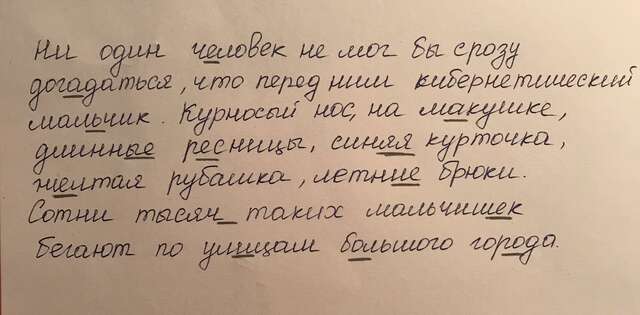 Ни один человек не мог бы сразу
догадаться, что перед ним кибернетический
мальчик. Курносый нос, на макушке,
длинные ресницы, синяя курточка,
желтая рубашка, летние брюки.
Сотни тысяч таких мальчишек
бегают по улицам большого города.